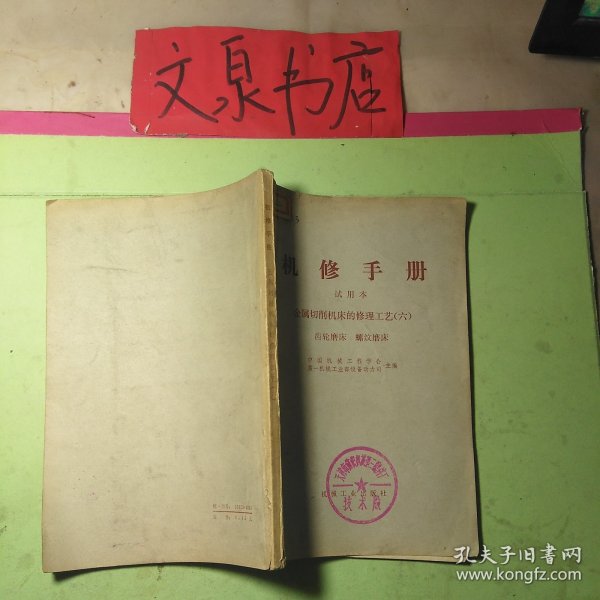 文泉书店
机修手册
试用本
金属切削机床的修理工艺(六)
齿轮磨床 螺纹磨床
中国机械工程学会
第一机械工业部设备动力司 主编
机械工业出版社
技术股
机修手册
孔夫子旧书网
www.kongfz.com